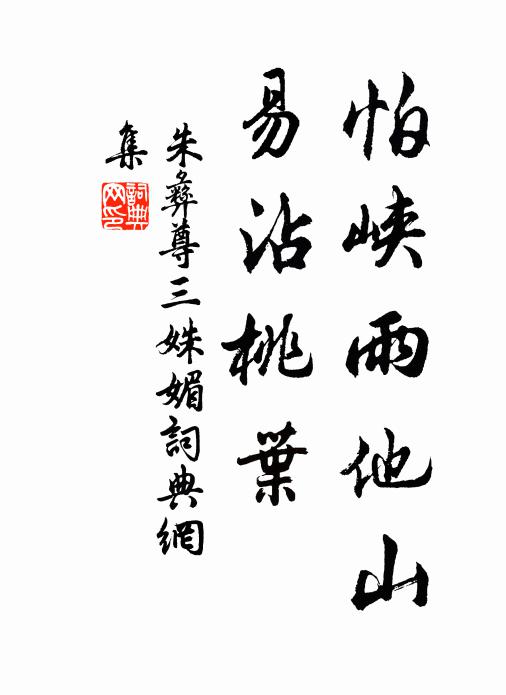 怕峽雨他山
易沾桃葉
朱彝尊三姝媚詞典網
集
詞典网印